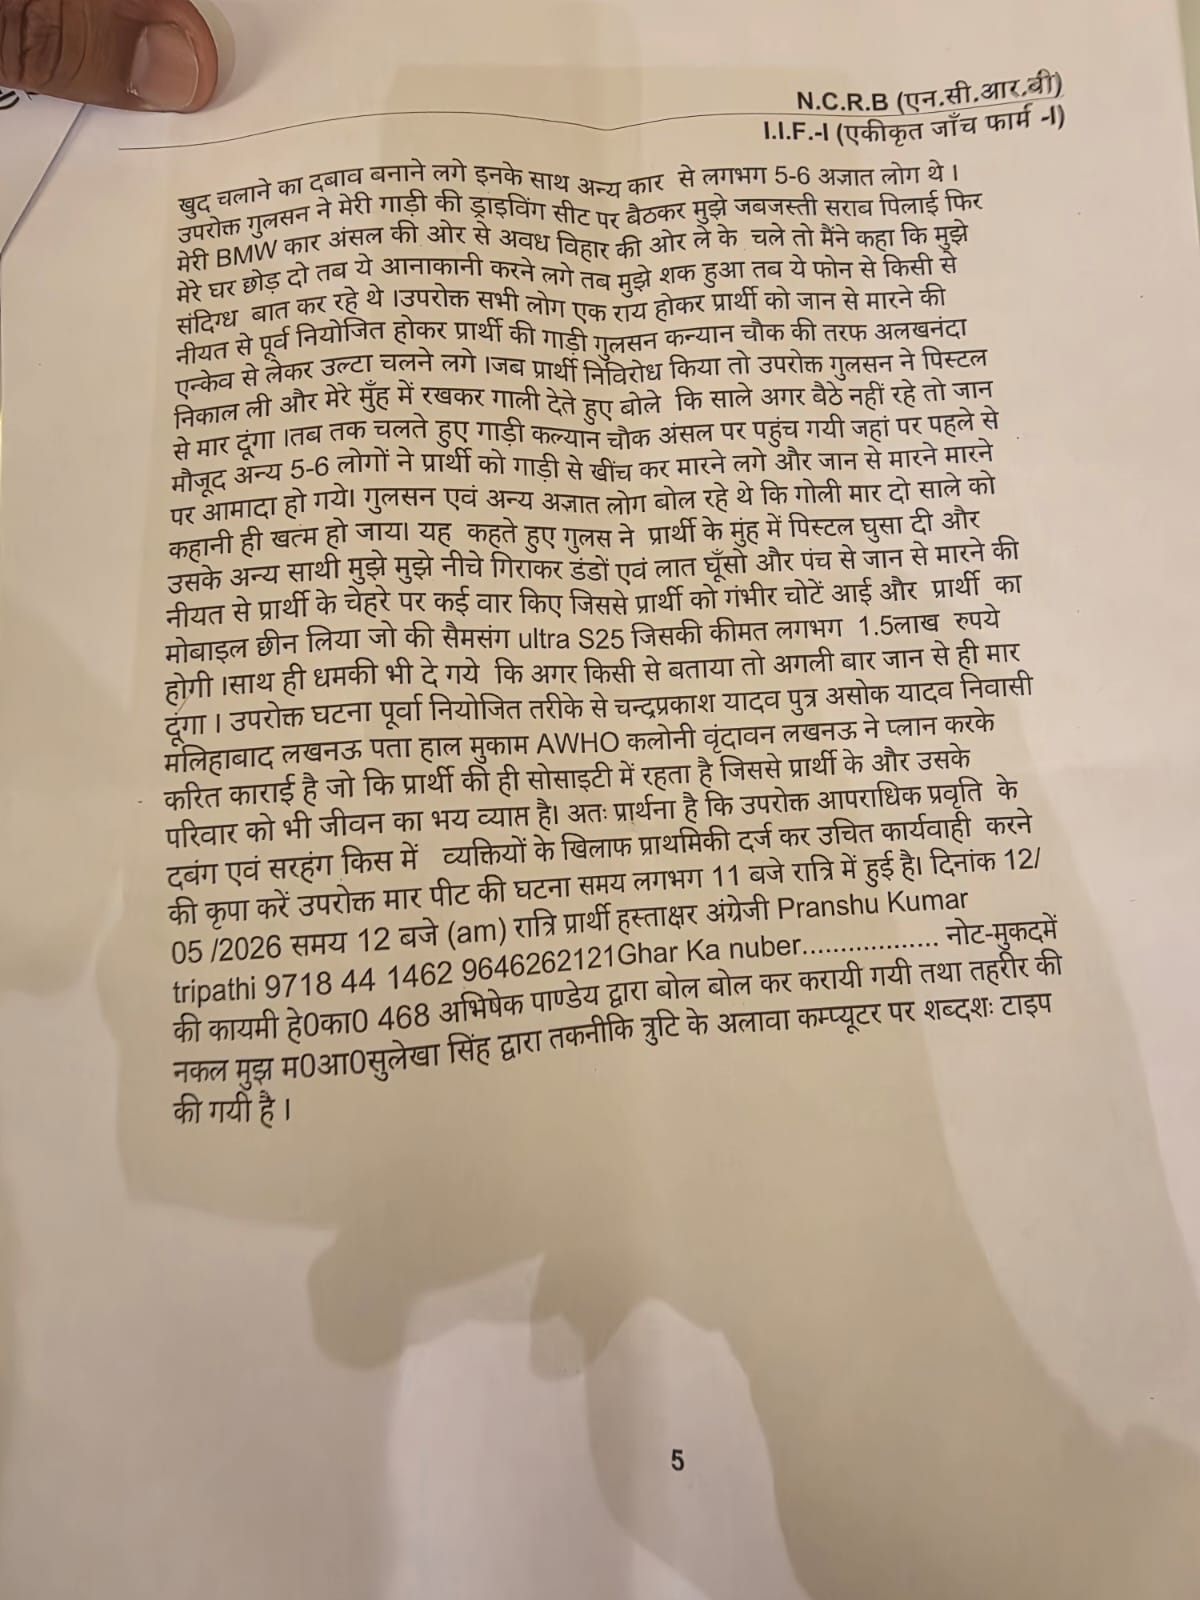 N.C.R.B (एन.सी.आर.बी)
I.I.F.-I (एकीकृत जाँच फार्म -I)
खुद चलाने का दबाव बनाने लगे इनके साथ अन्य कार से लगभग 5-6 अज्ञात लोग थे ।
उपरोक्त गुलसन ने मेरी गाड़ी की ड्राइविंग सीट पर बैठकर मुझे जबजस्ती सराब पिलाई फिर
मेरी BMW कार अंसल की ओर से अवध विहार की ओर ले के चले तो मैंने कहा कि मुझे
मेरे घर छोड़ दो तब ये आनाकानी करने लगे तब मुझे शक हुआ तब ये फोन से किसी से
संदिग्ध बात कर रहे थे ।उपरोक्त सभी लोग एक राय होकर प्रार्थी को जान से मारने की
नीयत से पूर्व नियोजित होकर प्रार्थी की गाड़ी गुलसन कन्यान चौक की तरफ अलखनंदा
एन्केव से लेकर उल्टा चलने लगे ।जब प्रार्थी निविरोध किया तो उपरोक्त गुलसन ने पिस्टल
निकाल ली और मेरे मुँह में रखकर गाली देते हुए बोले कि साले अगर बैठे नहीं रहे तो जान
से मार दूंगा ।तब तक चलते हुए गाड़ी कल्यान चौक अंसल पर पहुंच गयी जहां पर पहले से
मौजूद अन्य 5-6 लोगों ने प्रार्थी को गाड़ी से खींच कर मारने लगे और जान से मारने मारने
पर आमादा हो गये। गुलसन एवं अन्य अज्ञात लोग बोल रहे थे कि गोली मार दो साले को
कहानी ही खत्म हो जाय। यह कहते हुए गुलस ने प्रार्थी के मुंह में पिस्टल घुसा दी और
उसके अन्य साथी मुझे मुझे नीचे गिराकर डंडों एवं लात घूँसो और पंच से जान से मारने की
नीयत से प्रार्थी के चेहरे पर कई वार किए जिससे प्रार्थी को गंभीर चोटें आई और प्रार्थी का
मोबाइल छीन लिया जो की सैमसंग ultra S25 जिसकी कीमत लगभग 1.5लाख रुपये
होगी ।साथ ही धमकी भी दे गये कि अगर किसी से बताया तो अगली बार जान से ही मार
दूंगा । उपरोक्त घटना पूर्वा नियोजित तरीके से चन्द्रप्रकाश यादव पुत्र असोक यादव निवासी
मलिहाबाद लखनऊ पता हाल मुकाम AWHO कलोनी वृंदावन लखनऊ ने प्लान करके
करित काराई है जो कि प्रार्थी की ही सोसाइटी में रहता है जिससे प्रार्थी के और उसके
परिवार को भी जीवन का भय व्याप्त है। अतः प्रार्थना है कि उपरोक्त आपराधिक प्रवृति के
दबंग एवं सरहंग किस में व्यक्तियों के खिलाफ प्राथमिकी दर्ज कर उचित कार्यवाही करने
की कृपा करें उपरोक्त मार पीट की घटना समय लगभग 11 बजे रात्रि में हुई है। दिनांक 12/
05 /2026 समय 12 बजे (am) रात्रि प्रार्थी हस्ताक्षर अंग्रेजी Pranshu Kumar
tripathi 9718 44 1462 9646262121Ghar Ka nuber.................. नोट-मुकदमें
की कायमी हे0का0 468 अभिषेक पाण्डेय द्वारा बोल बोल कर करायी गयी तथा तहरीर की
नकल मुझ म0आ0सुलेखा सिंह द्वारा तकनीकि त्रुटि के अलावा कम्प्यूटर पर शब्दशः टाइप
की गयी है ।
5